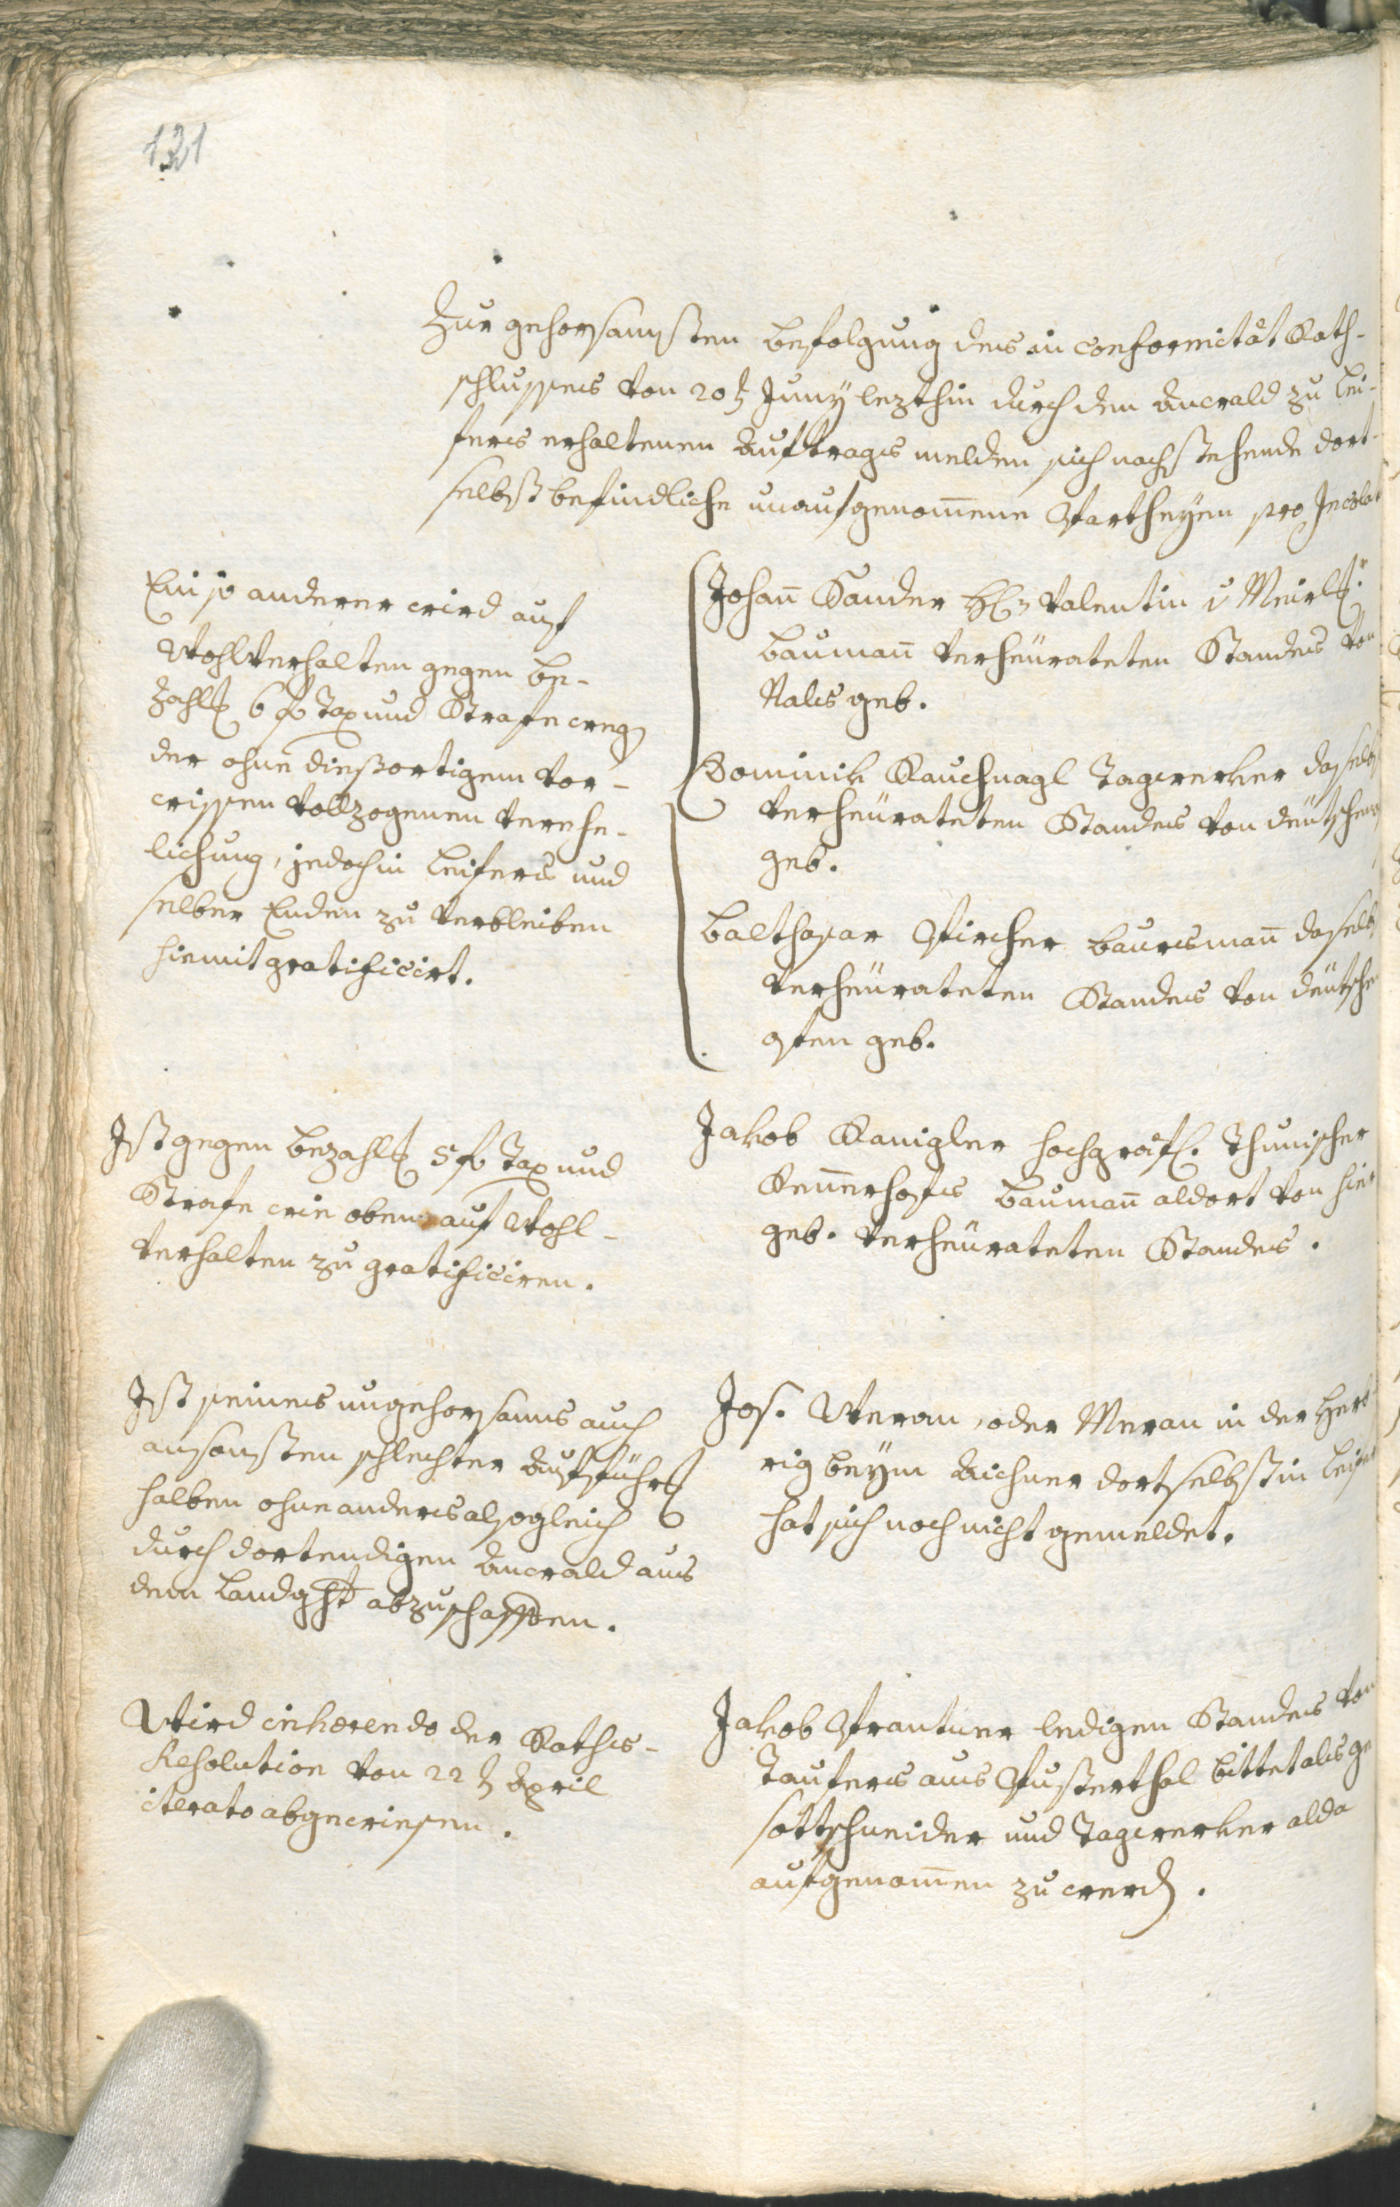 121
Zur gehorsamsten Befolgung des in conformitåt Rath-
schlusses von 20ten Juny lezthin durch den Anwald zu Lei-
fers erhaltenen Auftrages melden sich nachstehende dort-
selbst befindliche unaufgenom̄ene Partheyen pro Incolat
Ein so anderer wird auf
Wohlverhalten gegen Be-
zahlg 6 f Tax und Strafe weg
der ohne diesortigem Vor-
wissen vollzogenen Verehe-
lichung, jedoch in Leifers und
selber Enden zu verbleiben
hiemit gratificirt.
Johan̄ Sander Valentin
Bauman̄ verheürateten Standes von
Nals geb.
Dominik Rauchnagl Tagwerker daselbst
verheürateten Standes von deütschen
geb.
Balthasar Pircher Baursman̄ daselbst
verheürateten Standes von deütschen
ofen geb.
Ist gegen Bezahlg 5 f Tax und
Strafe wie oben auf Wohl-
verhalten zu gratificiren.
Jakob Kanigler hochgräfl. Thunischer
Ken̄erhofes Bauman̄ aldort von hier
geb. verheürateten Standes.
Ist seines ungehorsams auch
ansonsten schlechter Aufführg
halben ohne anders alsogleich
durch dortendigen Anwald aus
dem Landght abzuschaffen.
Jos. Veran, oder Meran in der Her-
rig beym Aichner dortselbst in Leifers
hat sich noch nicht gemeldet.
Wird inhærendo der Raths-
Resolution von 22ten April
iterato abgewiesen.
Jakob Prantner ledigen Standes von
Taufers aus Pusterthal bittet als ge
sottschneider und Tagwerker alda
aufgenom̄en zu werden.